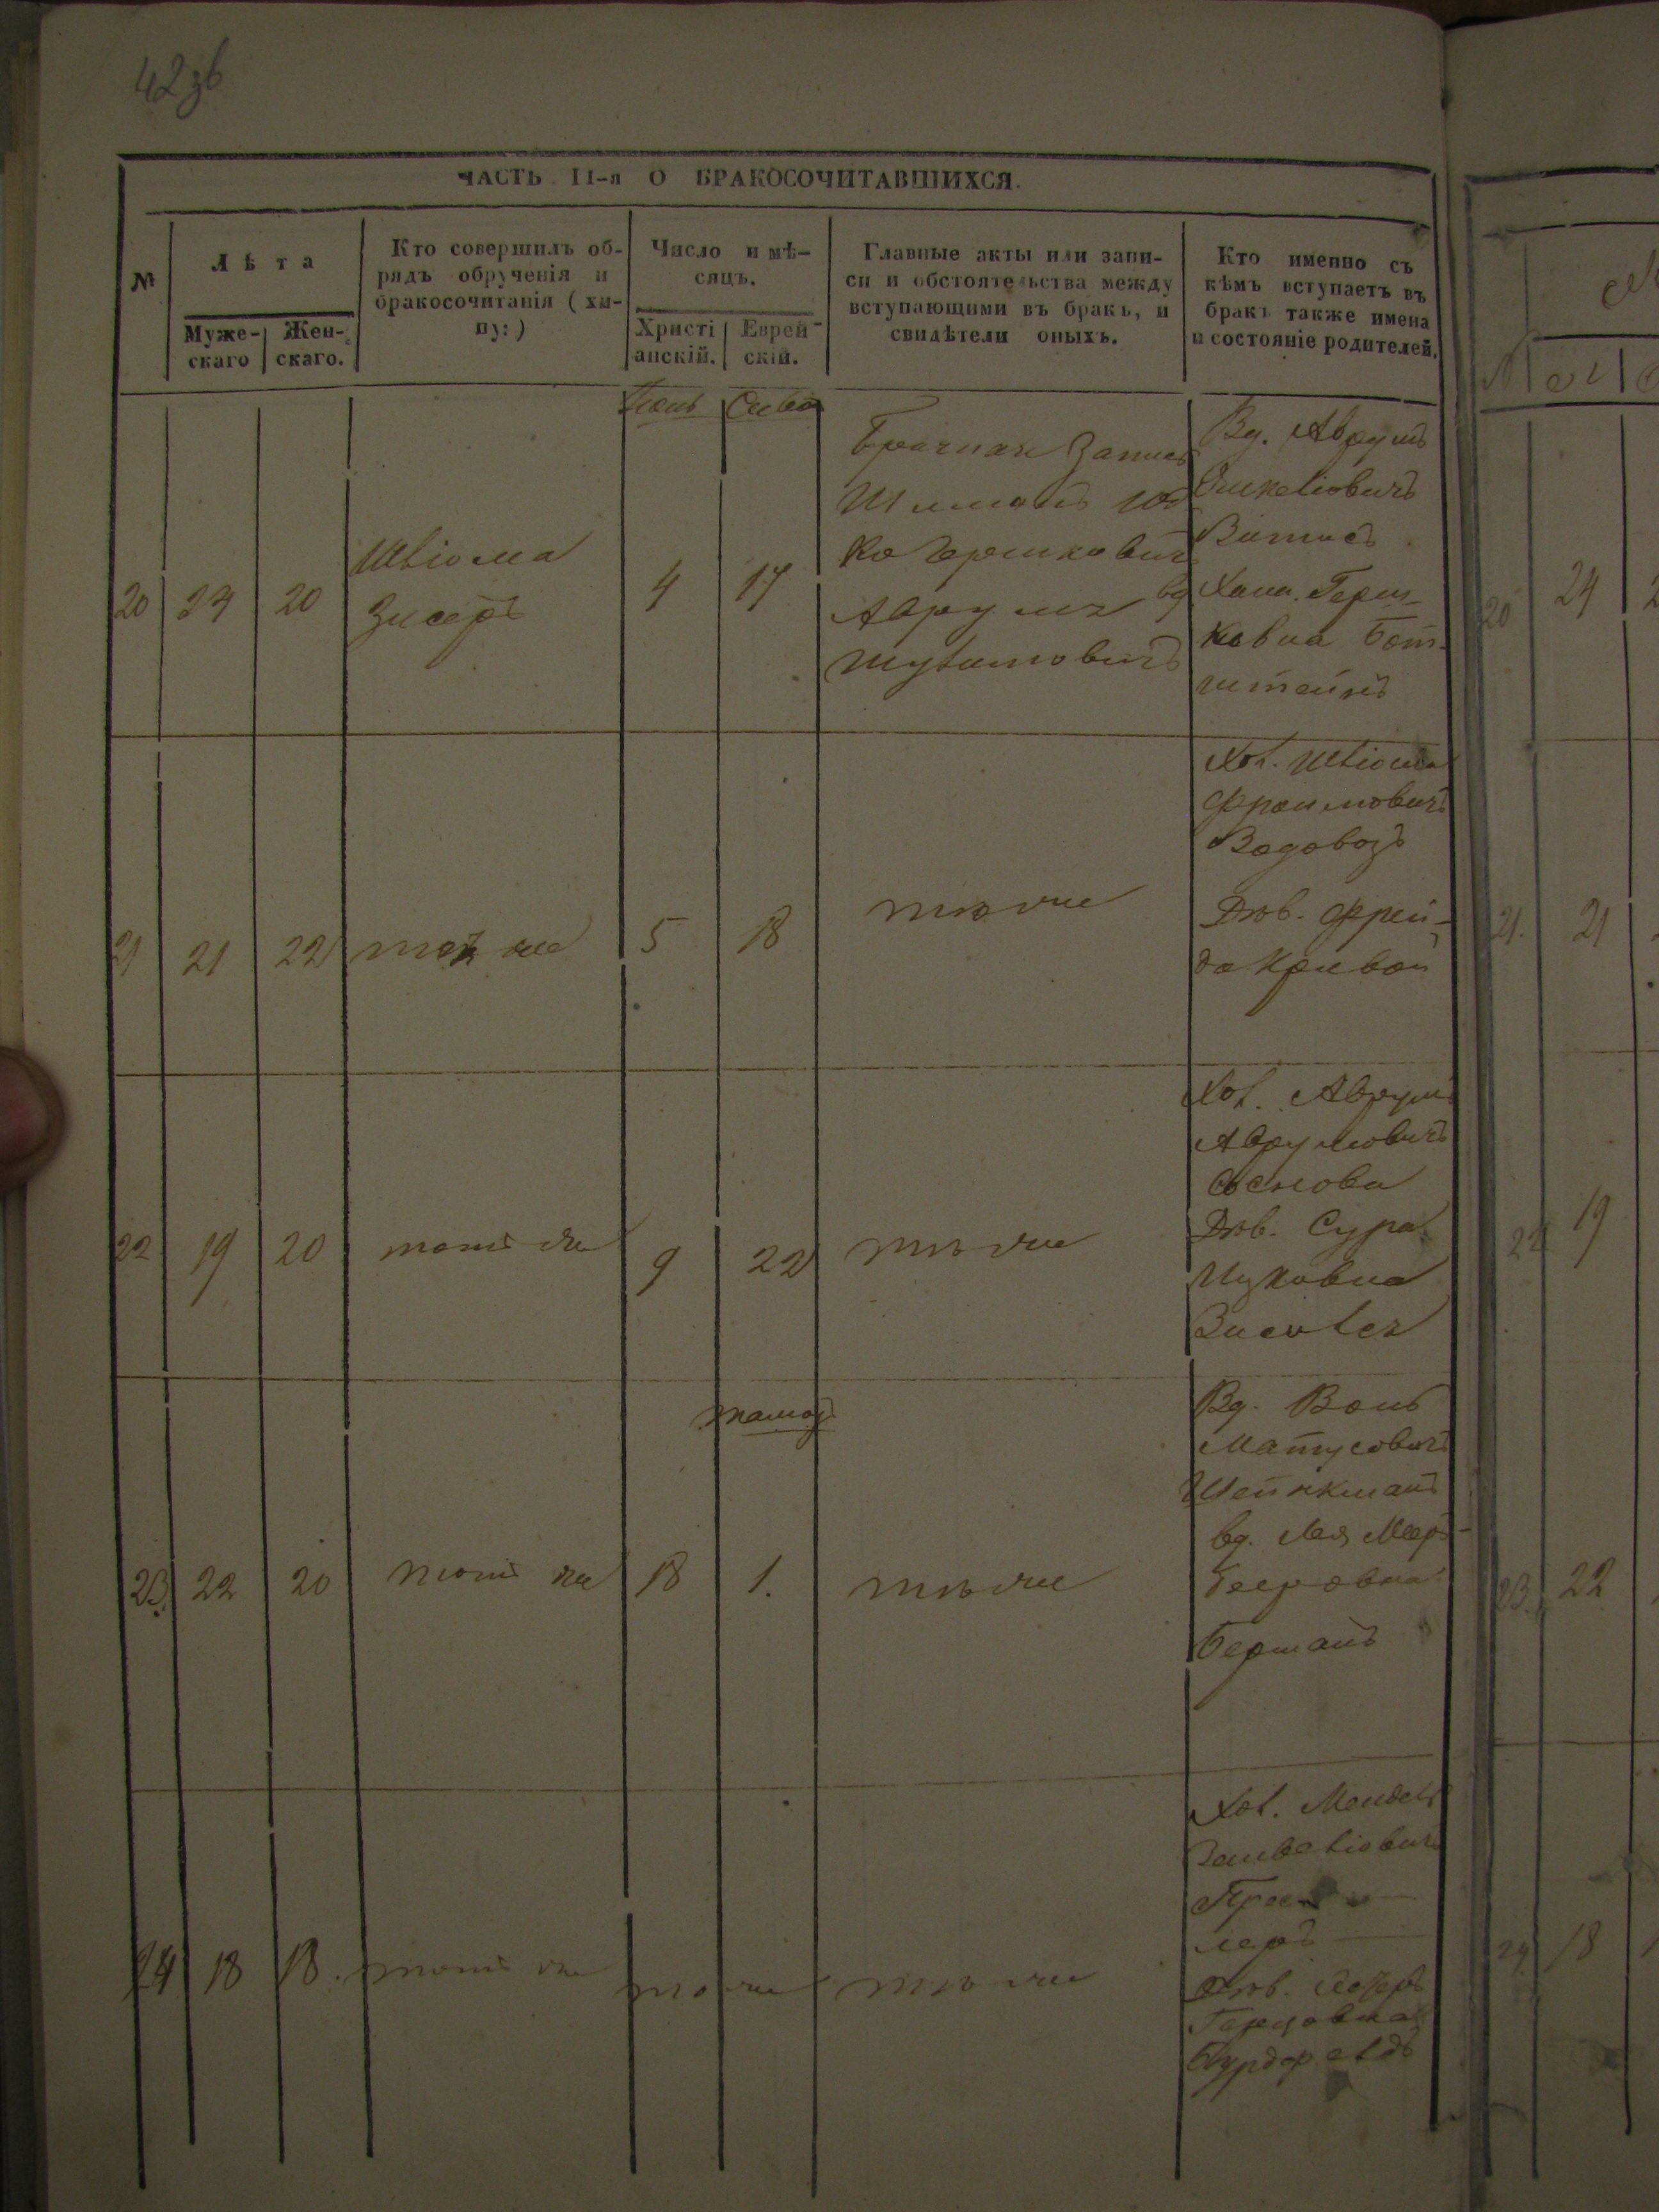 42 зв
ЧАСТЬ II-я О БРАКОСОЧИТАВШИХСЯ.
№
Лѣта
Муже-
скаго
Жен-
скаго.
Кто совершилъ об-
рядъ обрученія и
бракосочитанія (хи-
пу:)
Число и мѣ-
сяцъ.
Христі
анскій.
Еврей-
скій.
Главные акты или запи-
си и обстоятельства между
вступающими въ бракъ, и
свидѣтели оныхъ.
Кто именно съ
кѣмъ вступаетъ въ
бракъ также имена
и состояніе родителей.
Сива
20 24 20
Шліома
Зисеръ
4 17
Брачная Запись
Гершкович
Аврумъ
Вд. Аврумъ
Хана Герш-
ковна Бот-
штейнъ
21 21 22 тотъ же 5 18 тѣ же
Хол. Шліома
Фроимовичъ
Водовозъ
Дѣв. Фрей-
да Кривой
22 19 20 тотъ же 9 22 тѣ же
Хол. Аврумъ
Аврумовичъ
Дѣв. Сура
Ицковна
тамоз
23. 22 20 тотъ же 18 1. тѣ же
Вд. Вольф
Матусовичъ
Шейнкманъ
вд. Лея Меер-
Бееровна
Берманъ
24 18 18. тотъ же то же тѣ же
Хол. Мендель
леръ
Дѣв.
Герцовна
20 24
21. 21
22 19
23. 22
24 18